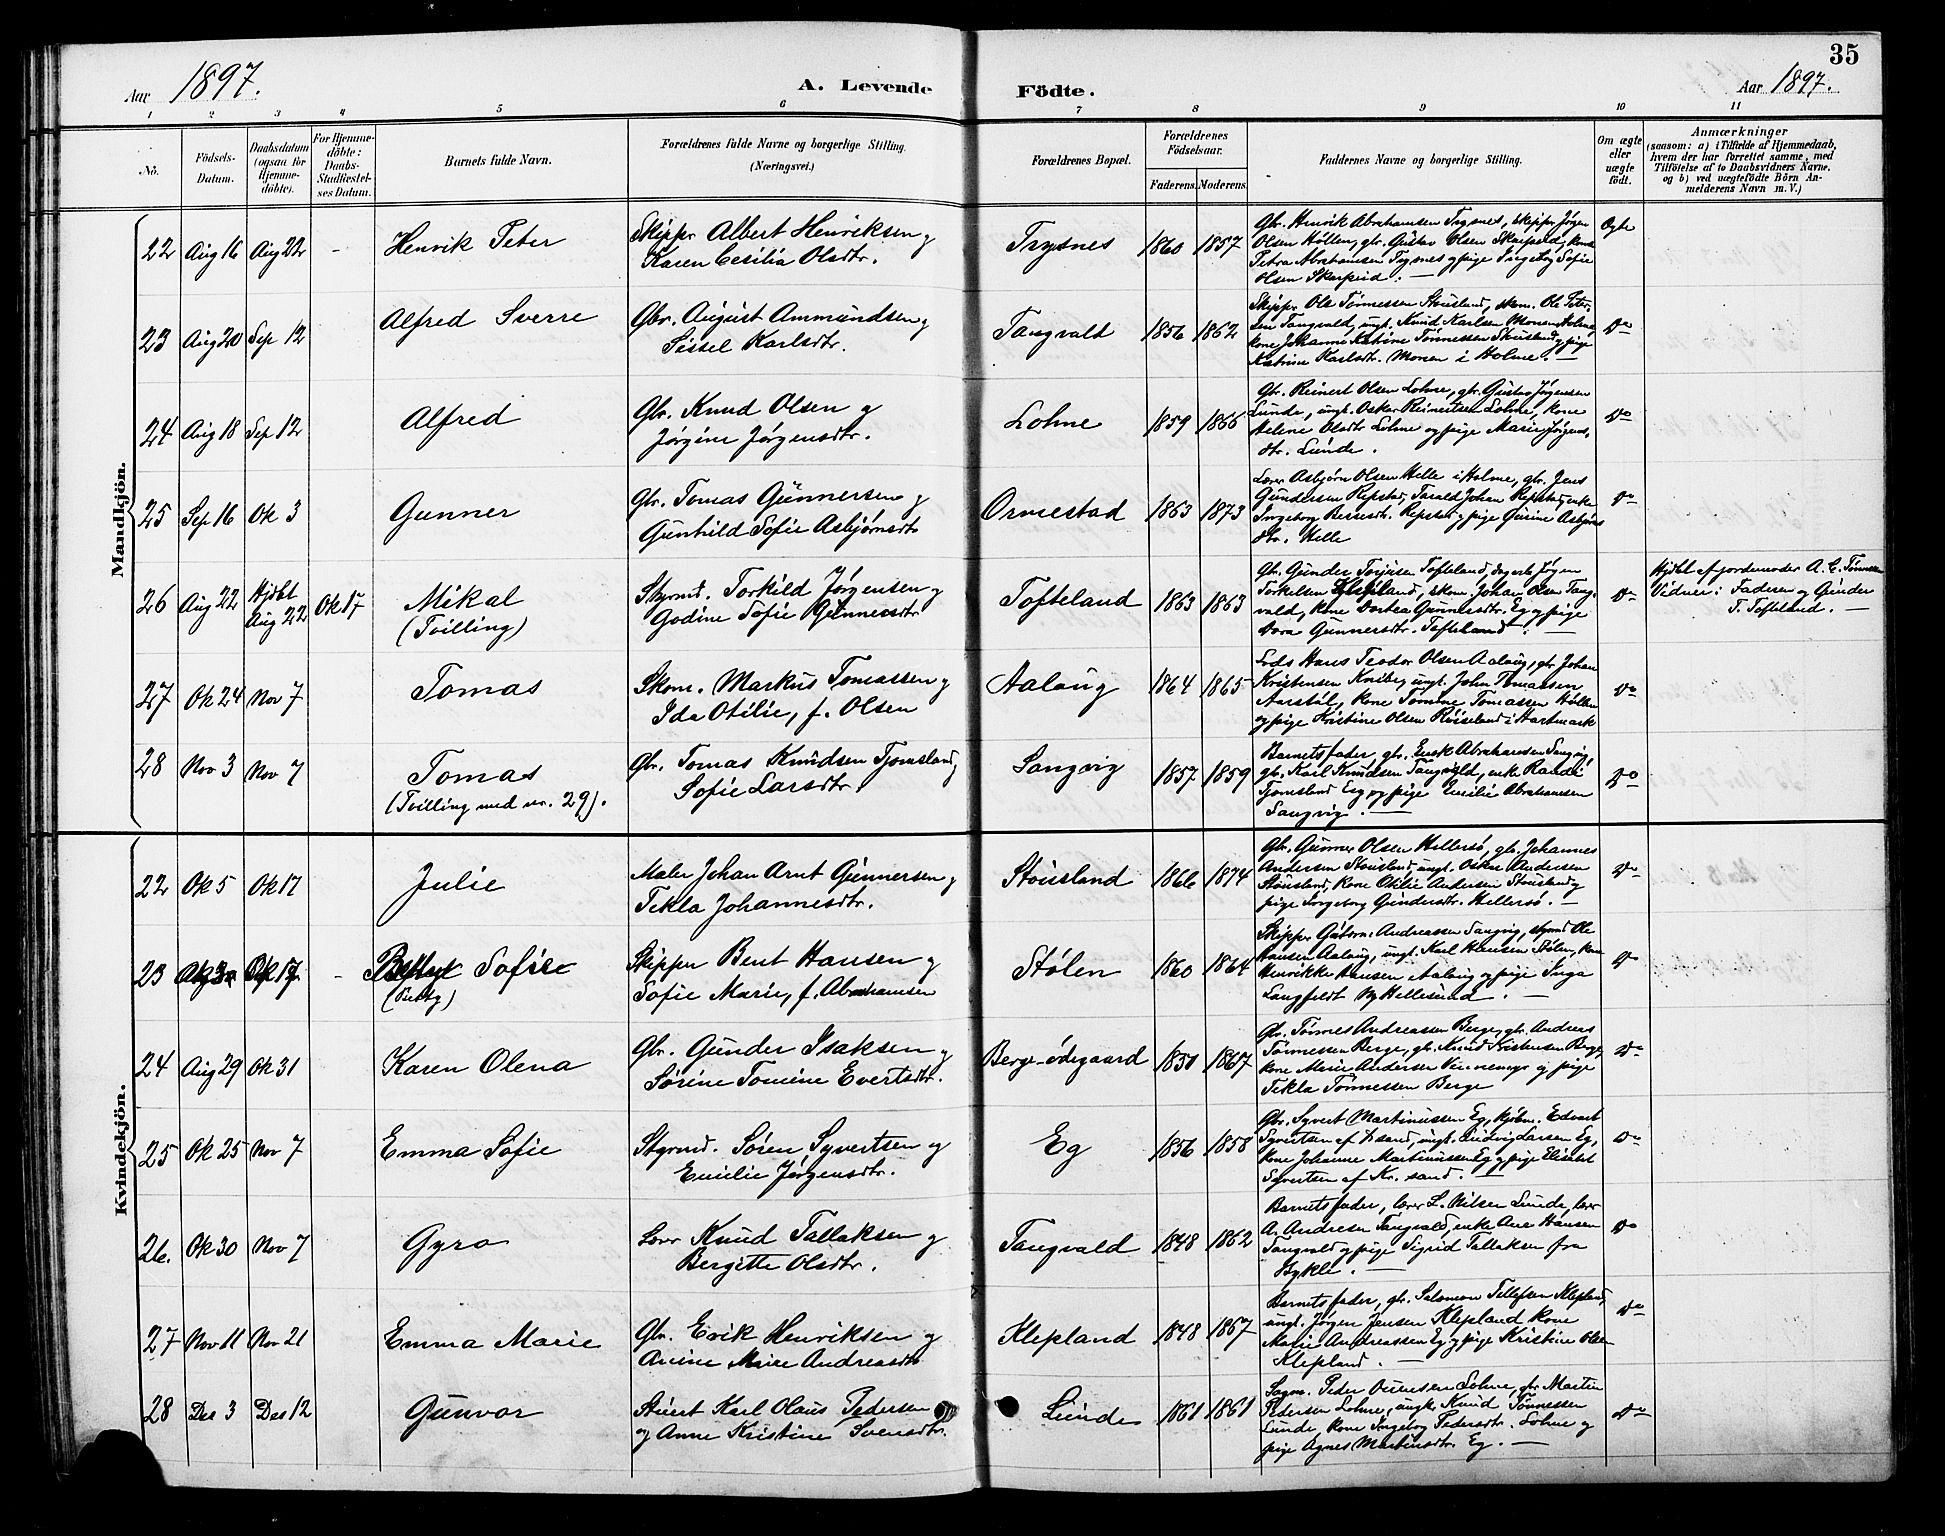 35
Aar 1897.
A. Levende Födte.
Aar 1897.
1 2 3 4 5 6 7 8 9 10 11
No.
Födsels-Datum.
Daabsdatum (ogsaa for Hjemme-döbte).
For Hjemme-döbte: Daabs-Stadfæstelses Datum.
Barnets fulde Navn.
Forældrenes fulde Navne og borgerlige Stilling.
(Næringsvei.)
Forældrenes Bopæl.
Forældrenes Födselsaar.
Faderens. Moderens.
Faddernes Navne og borgerlige Stilling.
Om ægte eller uægte födt.
Anmærkninger
(saasom: a) i Tilfælde af Hjemmedaab,
hvem der har forrettet samme, med
Tilföielse af to Daabsvidners Navne,
og b) ved uægtefödte Börn An-
melderens Navn m. V.)
Mandkjön.
22 Aug 16 Aug 22 - Henrik Peter
Skippr Albert Henriksen og
Karen Cesilia Olsdtr.
Trysnes 1860 1857
Gbr. Henrik Abrahamsen Trysnes, skippr Jørgen
Olsen Høllen, gbr. Gustav Olsen Skarpeid, kone
Petra Abrahamsen Trysnes og pige Ingeborg Sofie
Olsen Skarpeid.
Ægte
23 Aug 20 Sep 12 Alfred Sverre
Gbr. August Ammundsen og
Sissel Karlsdtr.
Tangvald 1856 1862
Skippr. Ole Tønnessen Stousland, skom. Ole Peter-
sen Tangvald, ungk. Knud Karlsen Monen i Holme,
kone Johanne Katrine Tønnessen Stousland og pige
Katrine Karlsdtr. Monen i Holme. —
Do
24 Aug 18 Sep 12 Alfred
Gbr. Knud Olsen og
Jørgine Jørgensdtr.
Lohne 1859 1866
Gbr. Reinert Olsen Lohne, gbr. Gustav Jørgensen
Lunde, ungk. Oskar Reinertsen Lohne, kone
Helene Olsdtr Lohne og pige Marie Jørgens-
dtr. Lunde.
Do
25 Sep 16 Ok 3 Gunner
Gbr. Tomas Gunnersen og
Gunhild Sofie Asbjørnsdtr
Ormestad 1863 1873
Lærer Asbjørn Olsen Helle i Holme, gbr. Jens
Gundersen Repstad, Tarald Johan Repstad, enke
Ingeborg Berresdtr. Repstad og pige Gusine Asbjørns
dtr. Helle
Do
26 Aug 22 Hjdbt Aug 22 Ok 17 Mikal
(Tvilling)
Styrmd. Torkild Jørgensen og
Godine Sofie Gunnersdtr
Tofteland 1863 1863
Gbr. Gunder Torjusen Tofteland, Jørgen
Torkelsen, skom. Johan Olsen Tang-
vald, kone Dortea Gunnersdtr. Eg og pige
Dora Gunnersdtr. Tofteland. —
Do
Hjdbt af jordemoder A. C. Tønnessen
Vidner: Faderen og Gunder
T. Tofteland. —
27 Ok 24 Nov 7 Tomas
Skom. Markus Tomassen og
Ida Otilie, f. Olsen
Aalaug 1864 1865
Lods Hans Teodor Olsen Aalaug, gbr Johan
Kristensen, ungk. John Tomassen
Aarstøl, kone Tomine Tomassen Høllen
og pige Kristine Olsen i Hartmark
Do
28 Nov 3 Nov 7 Tomas
(Tvilling med nr. 29).
Gbr. Tomas Knudsen Tjomsland og
Sofie Larsdtr.
Langvig 1857 1859
Barnets fader, gbr. Enok Abrahamsen Langvig,
gbr. Karl Knudsen Tangvald, enke Randi
Tjomsland Eg og pige Emilie Abrahamsen
Langvig. —
Do
Kvindekjön.
22 Ok 5 Ok 17 Julie
Maler Johan Arnt Gunnersen og
Tekla Johannesdtr.
Stousland 1866 1874
Gbr. Gunner Olsen Hellersø, gbr. Johannes
Andersen Stousland, ungk. Oskar Andersen
Stousland, kone Otilie Andersen Stousland og
pige Ingeborg Gundersdtr. Hellersø. —
Do
23 Ok 17 - Sofie
Skipper Bent Hansen og
Sofie Marie, f. Abrahamsen
Stølen 1860 1864
Skippr Andreassen Langvig, styrmd Ole
Hansen Aalaug, ungk. Karl Hansen Stølen, kone
Henrikke Hansen Aalaug og pige Inga
Langfeldt Ny Hellesund. —
Do
24 Aug 29 Ok 31 Karen Olena
Gbr. Gunder Isaksen og
Sørine Tomine Evertsdtr.
Berge-ødegaard 1851 1867
Gbr. Tønnes Andreassen Berge, gbr. Andreas
Tønnessen Berge, gbr. Knud Kristensen Berge,
kone Marie Andersen og pige
Tekla Tønnessen Berge
Do
25 Ok 25 Nov 7 Emma Sofie
Styrmd. Søren Syvertsen og
Emilie Jørgensdtr.
Eg 1856 1858
Gbr. Syvert Martinussen Eg, kjøbm. Edvart
Syvertsen af Krsand, ungk. Ludvig Larsen Eg,
kone Johanne Martinussen Eg og pige Elisabet
Syvertsen af Kr.sand. —
Do
26. Ok 30 Nov 7 Gyro
Lærer Knud Tallaksen og
Bergitte Olsdtr.
Tangvald 1848 1862
Barnets fader, lærer L. Nilsen Lunde, lærer
A. Andresen Tangvald, enke Ane Hansen
Tangvald og pige Sigrid Tallaksen fra
Bykle. —
Do
27 Nov 11 Nov 21 Emma Marie
Gbr. Erik Henriksen og
Anine Marie Andreasdtr
Klepland 1848 1867
Barnets fader, gbr. Salomon Tellefsen Klepland,
ungk. Jørgen Jensen Klepland kone
Marie Andreassen Eg og pige Kristine Olsen
Klepland. —
Do
28 Des 3 Des 12 Gunvor
Stuert Karl Olaus Pedersen
og Anne Kristine Svensdtr.
Lunde 1861 1861
Peder Lohne, gbr Martin
Pedersen Lohne, ungk Knud Tønnessen
Lunde, kone Ingeborg Pedersdtr. Lohne og
pige Agnes Martinsdtr. Eg. —
Do